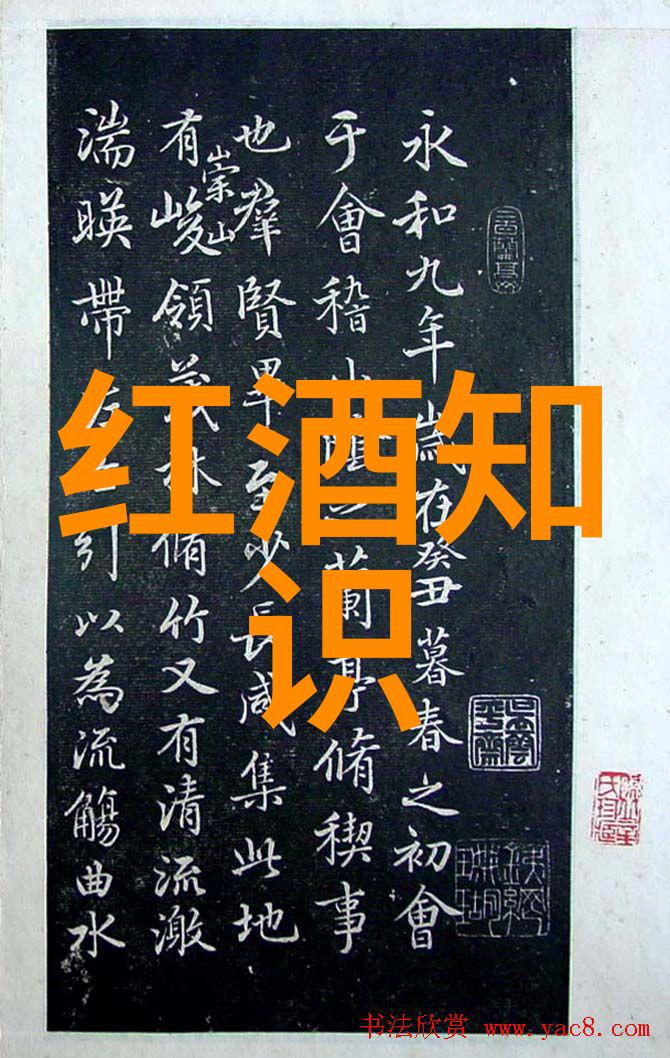 永和九年歲在癸丑暮春之初會
于會稽山陰之蘭亭脩稧事
也羣賢畢至少長咸集此地
有崇山峻領茂林脩竹又有清流激
湍暎帶左右引以為流觴曲水
红酒知
识
书法欣赏 www.yac8.com